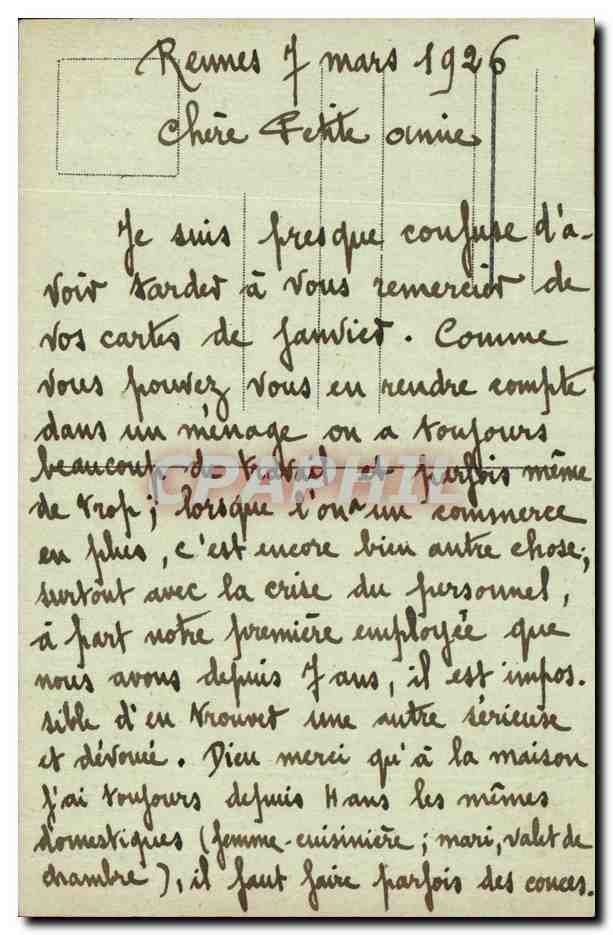 Rennes 7 mars 1926
Chère Petite Annie
Je suis presque confuse d'a-
voir tarder à vous remercier de
vos cartes de Janvier. Comme
vous pouvez vous en rendre compte
dans un ménage on a toujours
beaucoup de travail et parfois même
de trop; lorsque l'on a un commerce
en plus, c'est encore bien autre chose;
surtout avec la crise du personnel,
à part notre première employée que
nous avons depuis 7 ans, il est impos.
sible d'en trouver une autre sérieuse
et dévouée. Dieu merci qu'à la maison
j'ai toujours depuis 4 ans les mêmes
domestiques (femme-cuisinière; mari, valet de
chambre), il faut faire parfois des
CPAPHIL